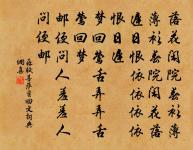 落花閑院春衫薄
薄衫春院閑花落
遲日恨依依依依
恨日遲
夢回鶯舌弄弄舌
鶯回夢
郵便問人羞羞人
問便郵
蘇軾菩薩蠻回文詞